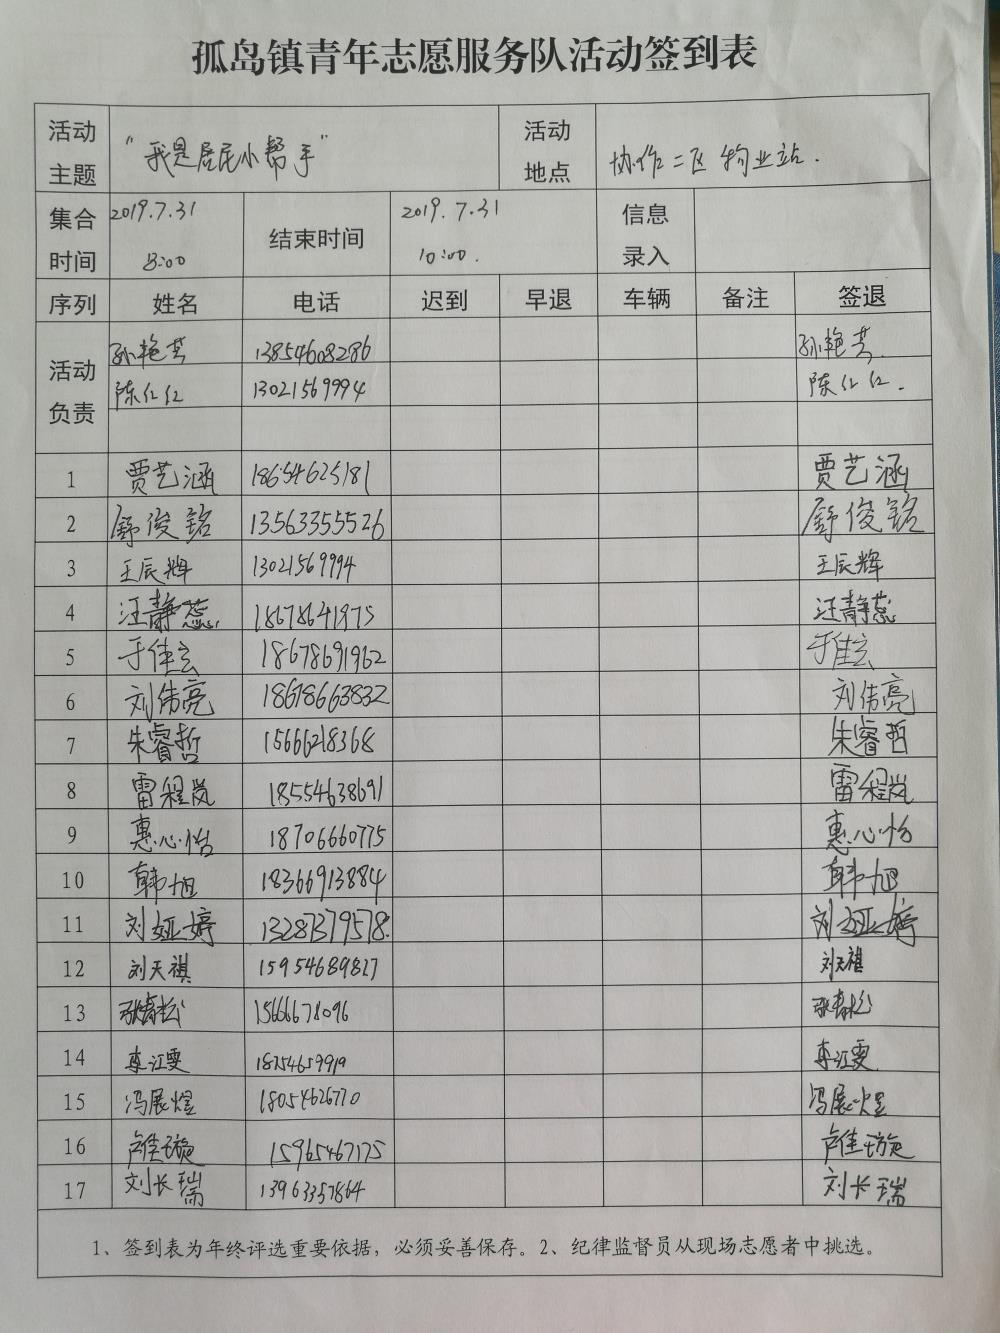 孤岛镇青年志愿服务队活动签到表
活动主题 "我是居民小帮手" 活动地点 协作二区物业站.
集合时间 2019.7.31 8:00 结束时间 2019.7.31 10:00. 信息录入
序列 姓名 电话 迟到 早退 车辆 备注 签退
活动负责 孙艳芳 13854608286 孙艳芳.
陈仁红 13021569994 陈仁红.
1 贾艺涵 18654625181 贾艺涵
2 舒俊铭 13563355526 舒俊铭
3 王辰辉 13021569994 王辰辉
4 汪静蕊 18678641975 汪静蕊
5 于佳玄 18678691962 于佳玄
6 刘伟亮 18678663832 刘伟亮
7 朱睿哲 15666218368 朱睿哲
8 雷程岚 18554638691 雷程岚
9 惠心怡 18706660775 惠心怡
10 韩旭 18366913884 韩旭
11 刘娅婷 13287379578. 刘娅婷
12 刘天祺 15954689827 刘天祺
13 张春松 15666678096 张春松
14 李江雯 18254659919 李江雯
15 冯展煜 18054626770 冯展煜
16 卢佳璇 15965467175 卢佳璇
17 刘长瑞 13963357864 刘长瑞
1、签到表为年终评选重要依据，必须妥善保存。2、纪律监督员从现场志愿者中挑选。